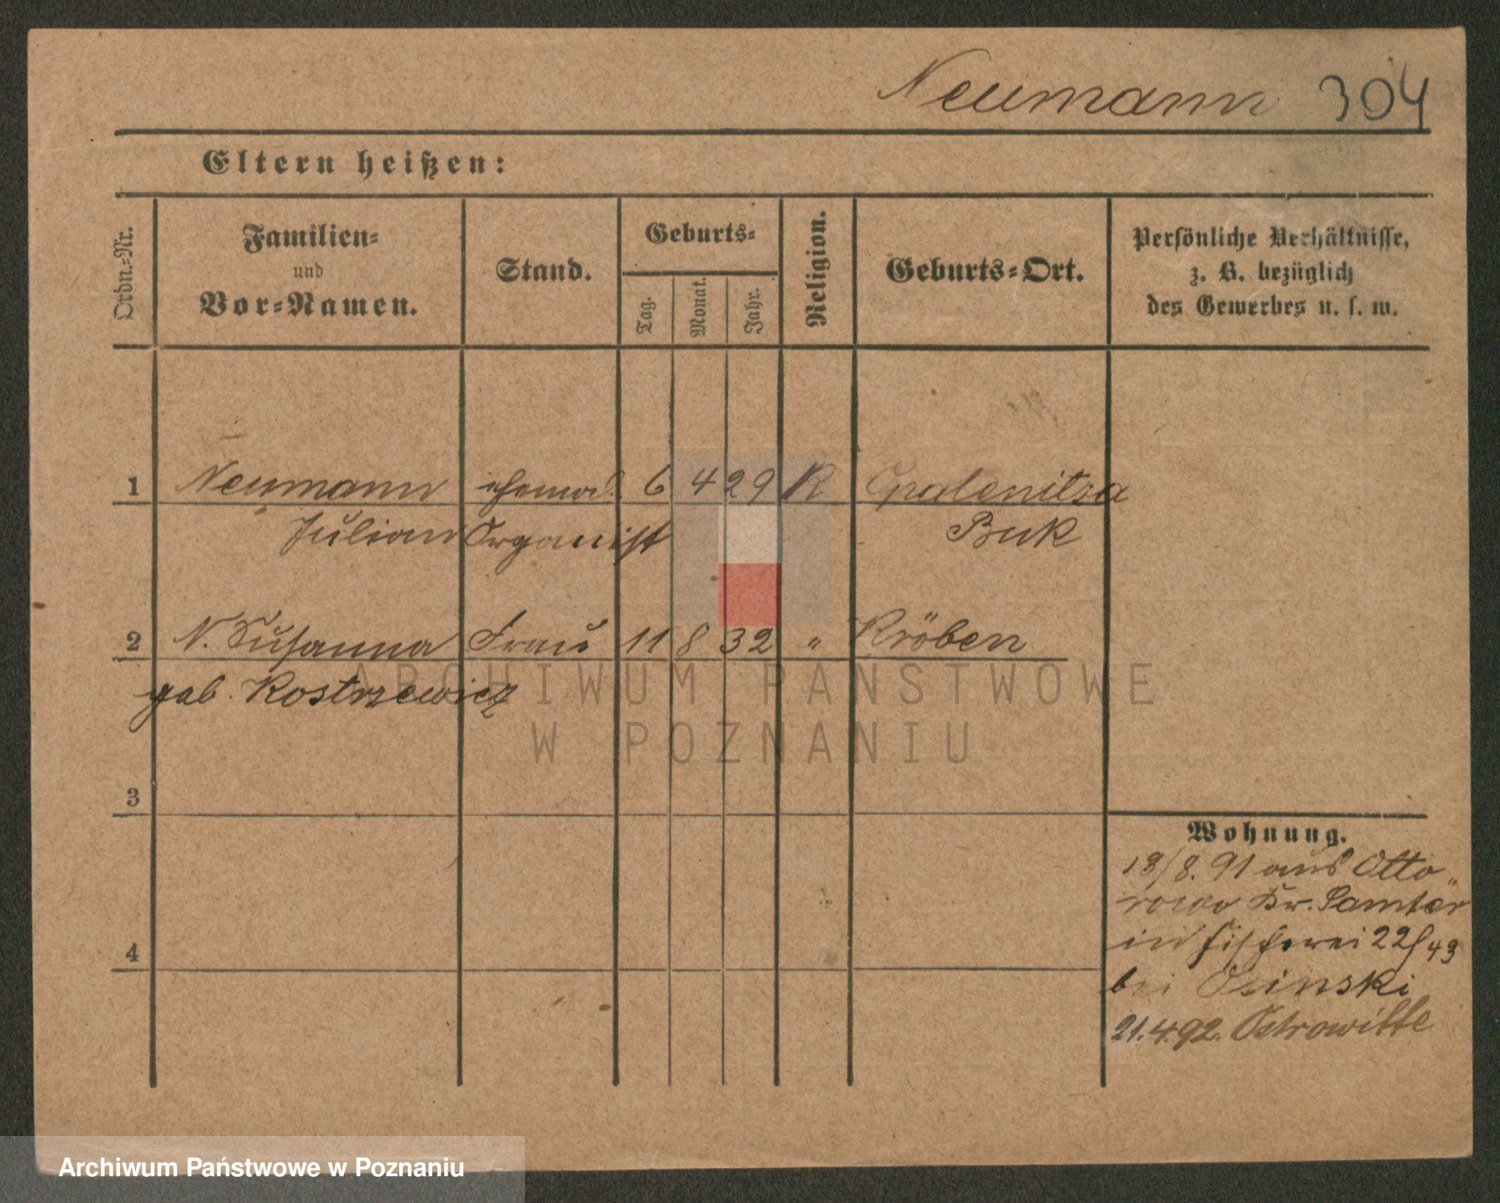 Neumann 304
Eltern heißen:
Ordn.-Nr.
Familien-
und
Vor-Namen.
Stand.
Geburts-
Tag.
Monat.
Jahr.
Religion.
Geburts-Ort.
Persönliche Verhältnisse,
z. B. bezüglich
des Gewerbes u. s. w.
1 Neumann ehemal. 6 4 29 K Opalenitza
Julian Organist Buk
2 N. Susanna Frau 11 8 32 " Kröben
geb. Kostrzewicz
3
4
Wohnung.
18/8. 91 aus Otto
rowo Kr. Samter
in Fischerei 22/43
bei Osinski
21.4.92. Ostrowitte
ARCHIWUM PAŃSTWOWE
W POZNANIU
Archiwum Państwowe w Poznaniu